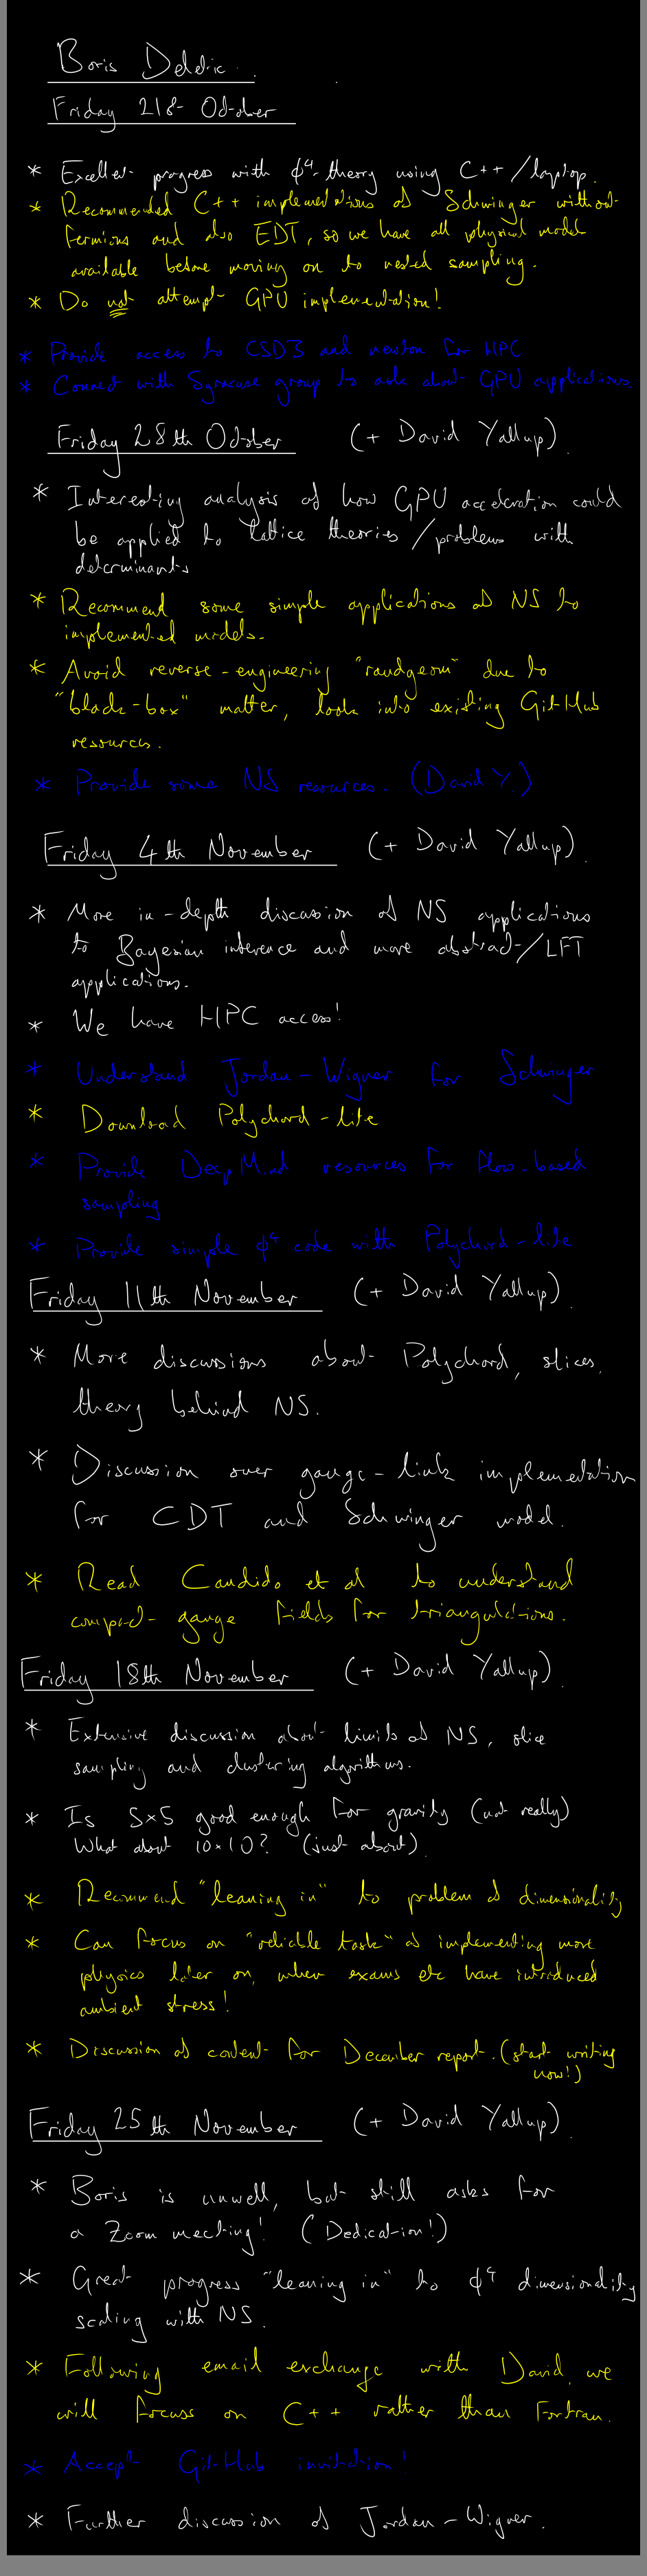 Boris Deletic.
Friday 21st October
* Excellent progress with ϕ⁴-theory using C++/laptop.
* Recommended C++ implementations of Schwinger without
fermions and also EDT, so we have all physical models
available before moving on to nested sampling.
* Do not attempt GPU implementation!
* Provide access to CSD3 and newton for HPC
* Connect with Syracuse group to ask about GPU applications
Friday 28th October (+ David Yallup).
* Interesting analysis of how GPU acceleration could
be applied to lattice theories/problems with
determinants
* Recommend some simple applications of NS to
implemented models.
* Avoid reverse-engineering "randgeom" due to
"black-box" matter, look into existing GitHub
resources.
* Provide some NS resources. (David Y.)
Friday 4th November (+ David Yallup).
* More in-depth discussion of NS applications
to Bayesian inference and more abstract/LFT
applications.
* We have HPC access!
* Understand Jordan-Wigner for Schwinger
* Download Polychord-lite
* Provide DeepMind resources for flow-based
sampling
* Provide simple ϕ⁴ code with Polychord-lite
Friday 11th November (+ David Yallup).
* More discussions about Polychord, slices,
theory behind NS.
* Discussion over gauge-link implementation
for CDT and Schwinger model.
* Read Candido et al to understand
compact gauge fields for triangulations.
Friday 18th November (+ David Yallup).
* Extensive discussion about limits of NS, slice
sampling and clustering algorithms.
* Is 5×5 good enough for gravity (not really)
What about 10×10? (just about).
* Recommend "leaning in" to problem of dimensionality
* Can focus on "reliable task" of implementing more
physics later on, when exams etc have introduced
ambient stress!
* Discussion of content for December report. (start writing
now!)
Friday 25th November (+ David Yallup).
* Boris is unwell, but still asks for
a Zoom meeting! (Dedication!)
* Great progress "leaning in" to ϕ⁴ dimensionality
scaling with NS.
* Following email exchange with David, we
will focuss on C++ rather than Fortran.
* Accept GitHub invitation!
* Further discussion of Jordan-Wigner.